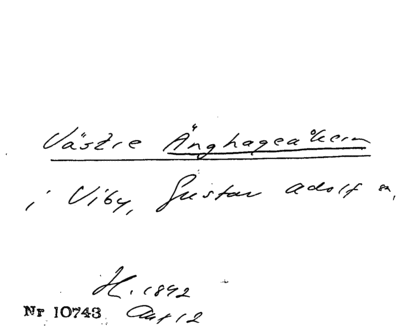 Västre Änghageåkern
i Viby, Gustav Adolf sn,
H. 1892
Nr 10743 Akt 12